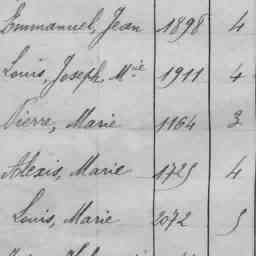 Emmanuel, Jean 1898 4
Louis, Joseph, Mie 1911 4
Pierre, Marie 1164 3
Alexis, Marie 1725 4
Louis, Marie 2072 5